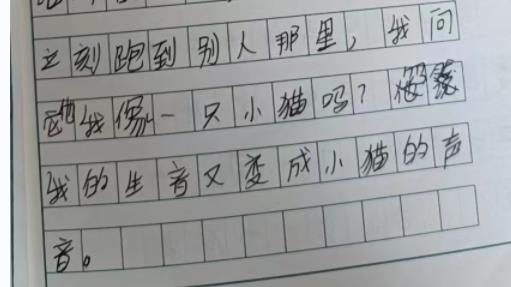 立刻跑到别人那里，我问
他我像一只小猫吗？
我的生音又变成小猫的声
音。